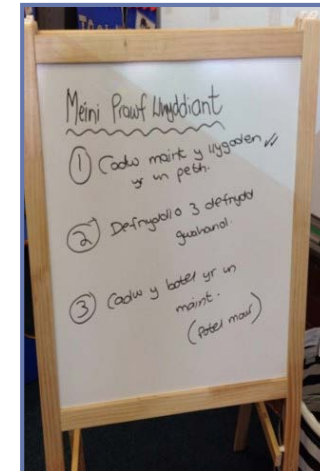 Meini Prawf Llwyddiant
① Cadw maint y llygoden
yr un peth.
② Defnyddio 3 defnydd
gwahanol.
③ Cadw y botel yr un
maint.
(Potel mawr)